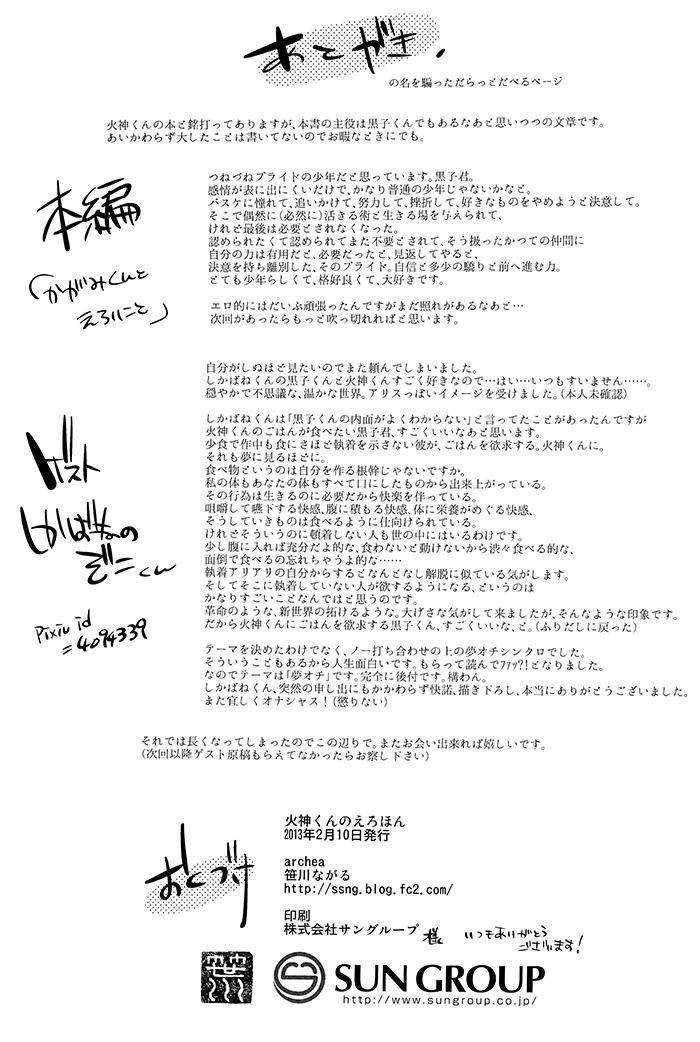 あとがき.
の名を騙っただらっとだべるページ
火神くんの本と銘打ってありますが、本書の主役は黒子くんでもあるなあと思いつつの文章です。
あいかわらず大したことは書いてないのでお暇なときにでも。
本編
「かがみくんと
えろいこと」
つねづねプライドの少年だと思っています。黒子君。
感情が表に出にくいだけで、かなり普通の少年じゃないかなと。
バスケに憧れて、追いかけて、努力して、挫折して、好きなものをやめようと決意して。
そこで偶然に(必然に)活きる術と生きる場を与えられて、
けれと最後は必要とされなくなった。
認められたくて認められてまた不要とされて、そう扱ったかつての仲間に
自分の力は有用だと、必要だったと、見返してやると、
決意を持ち離別した、そのプライド。自信と多少の驕りと前へ進む力。
とても少年らしくて、格好良くて、大好きです。
エロ的にはだいぶ頑張ったんですがまだ照れがあるなあと…
次回があったらもっと吹っ切れればと思います。
ゲスト
しかばねの
ぞこくん
Pixiv id
=4094339
自分がしぬほど見たいのでまた頼んでしまいました。
しかばねくんの黒子くんと火神くんすごく好きなので…はい…いつもすいません……。
穏やかで不思議な、温かな世界。アリスっぽいイメージを受けました。(本人未確認)
しかばねくんは「黒子くんの内面がよくわからない」と言ってたことがあったんですが
火神くんのごはんが食べたい黒子君、すごくいいなあと思います。
少食で作中も食にさほと執着を示さない彼が、ごはんを欲求する。火神くんに。
それも夢に見るほどに。
食べ物というのは自分を作る根幹じゃないですか。
私の体もあなたの体もすべて口にしたものから出来上がっている。
その行為は生きるのに必要だから快楽を伴っている。
咀嚼して嚥下する快感、腹に積もる快感、体に栄養がめぐる快感、
そうしていきものは食べるように仕向けられている。
けれとそういうのに頓着しない人も世の中にはいるわけです。
少し腹に入れば充分だよ的な、食わないと動けないから渋々食べる的な、
面倒で食べるの忘れちゃうよ的な……
執着アリアリの自分からするとなんとなし解脱に似ている気がします。
そしてそこに執着していない人が欲するようになる、というのは
かなりすごいことなんではと思うのです。
革命のような、新世界の拓けるような。大げさな気がして来ましたが、そんなような印象です。
だから火神くんにごはんを欲求する黒子くん、すごくいいな、と。(ふりだしに戻った)
テーマを決めたわけでなく、ノー打ち合わせの上の夢オチシンクロでした。
そういうこともあるから人生面白いです。もらって読んでﾌｧｯ?!となりました。
なのでテーマは「夢オチ」です。完全に後付です。構わん。
しかばねくん、突然の申し出にもかかわらず快諾、描き下ろし、本当にありがとうございました。
また宜しくオナシャス!(懲りない)
それでは長くなってしまったのでこの辺りで。またお会い出来れば嬉しいです。
(次回以降ゲスト原稿もらえてなかったらお察し下さい)
おくづけ
火神くんのえろほん
2013年2月10日発行
archea
笹川ながる
http://ssng.blog.fc2.com/
印刷
株式会社サングループ 様 いつもありがとう
ございます!
SUN GROUP
http://www.sungroup.co.jp/